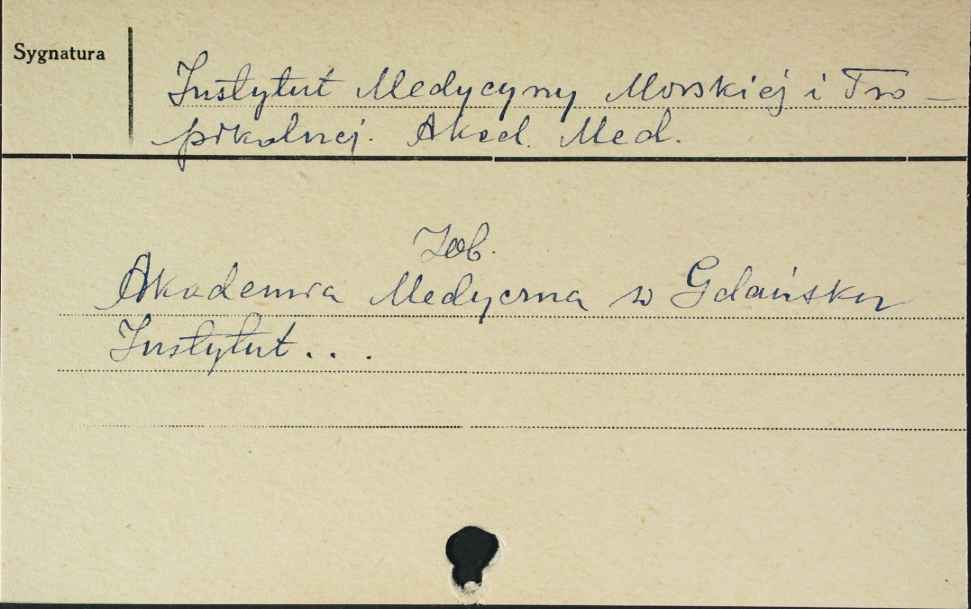 Sygnatura
Instytut Medycyny Morskiej i Tro-
pikalnej. Akad. Med.
Zob.
Akademia Medyczna w Gdańsku
Instytut...